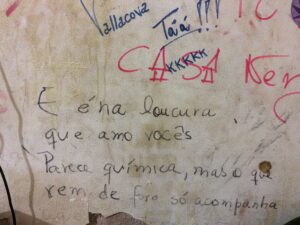 Vallacova
Taiá!!!
CASA Ner
KKKKK
E é na loucura
que amo vocês
Parece química, mas o que
vem de fora só acompanha